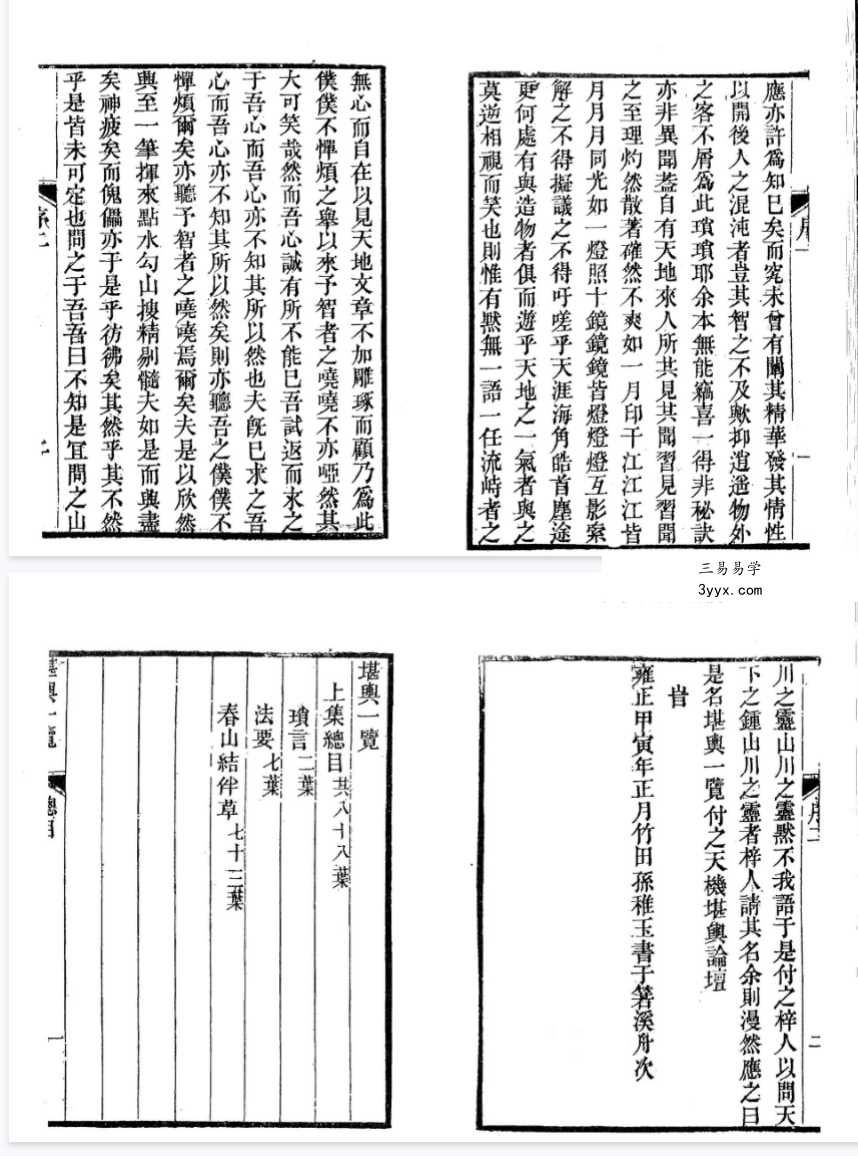 應亦許爲知已矣而究未曾有闡其精華發其情性
以開後人之混沌者豈其智之不及歟抑逍遥物外
之客不屑爲此瑣瑣耶余本無能竊喜一得非秘訣
亦非異聞葢自有天地來人所共見共聞習見習聞
之至理灼然散著確然不爽如一月印千江江江皆
月月月同光如一燈照十鏡鏡鏡皆燈燈燈互影索
解之不得擬議之不得吁嗟乎天涯海角皓首塵途
更何處有與造物者俱而遊乎天地之一氣者與之
莫逆相視而笑也則惟有默無一語一任流峙者之
序一
一
無心而自在以見天地文章不加雕琢而顧乃爲此
僕僕不憚煩之舉以來予智者之嘵嘵不亦啞然其
大可笑哉然而吾心誠有所不能已吾試返而求之
于吾心而吾心亦不知其所以然也夫旣已求之吾
心而吾心亦不知其所以然矣則亦聽吾之僕僕不
憚煩爾矣亦聽予智者之嘵嘵焉爾矣夫是以欣然
興至一筆揮來點水勾山搜精剔髓夫如是而興盡
矣神疲矣而傀儡亦于是乎彷彿矣其然乎其不然
乎是皆未可定也問之于吾吾曰不知是宜問之山
序二
三易易学
3yyx.com
川之靈山川之靈默不我語于是付之梓人以問天
下之鍾山川之靈者梓人請其名余則漫然應之曰
是名堪輿一覽付之天機堪輿論壇
旹
雍正甲寅年正月竹田孫稚玉書于箬溪舟次
序二
二
堪輿一覽
上集總目共八十八葉
瑣言二葉
法要七葉
春山結伴草七十三葉
堪輿一覽
總目
一